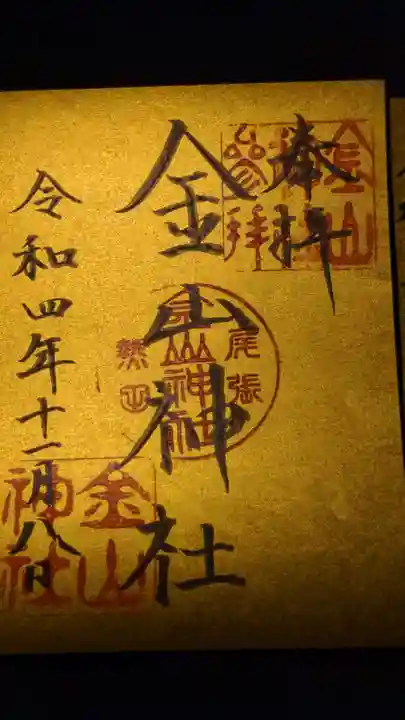 奉拝
金山神社
令和四年十一月八日
尾張
金山神社
熱田
金山
神社